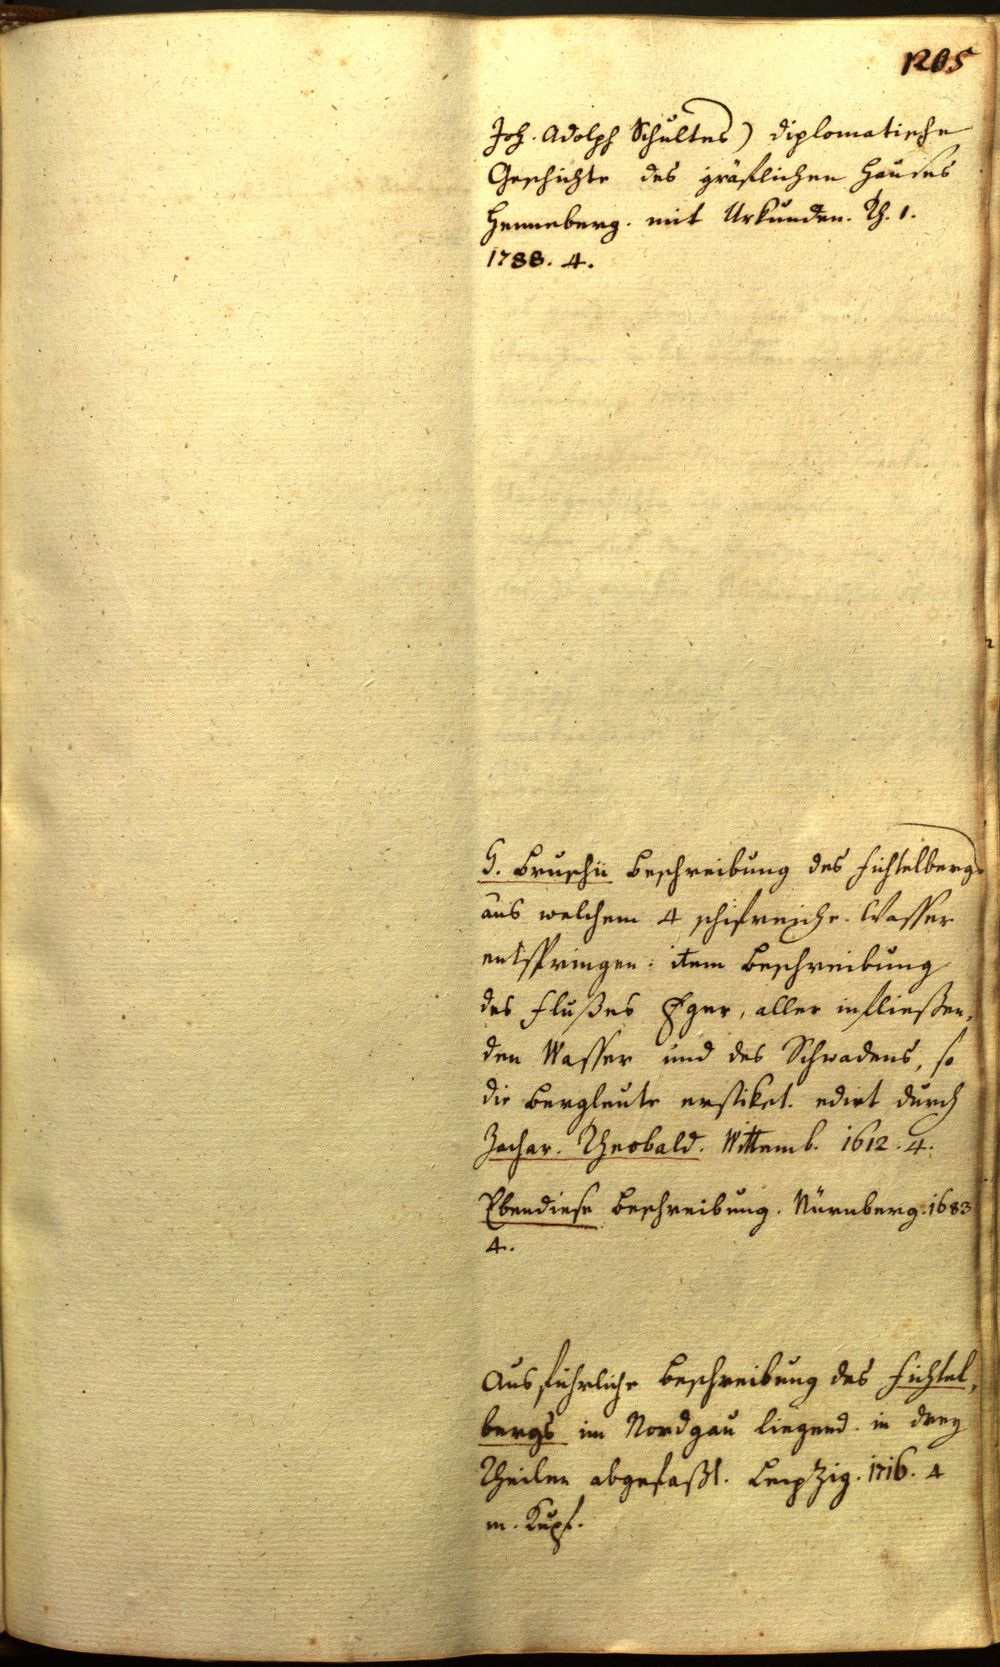 1205
Joh. Adolph Schultes) diplomatische
Geschichte des gräflichen Hauses
Henneberg. mit Urkunden. Th. 1.
1788. 4.
G. Bruschii Beschreibung des Fichtelbergs
aus welchem 4 schifreiche Wasser
entspringen: item Beschreibung
des Flußes Eger, aller infließen,
den Wasser und des Schwadens, so
die Bergleute erstiket. edirt durch
Zachar. Theobald. Wittemb. 1612. 4.
Ebendiese Beschreibung. Nürnberg. 1683
4.
Ausführliche Beschreibung des Fichtel,
bergs im Nordgau liegend in drey
Theilen abgefaßt. Leipzig. 1716. 4
m. Kupf.